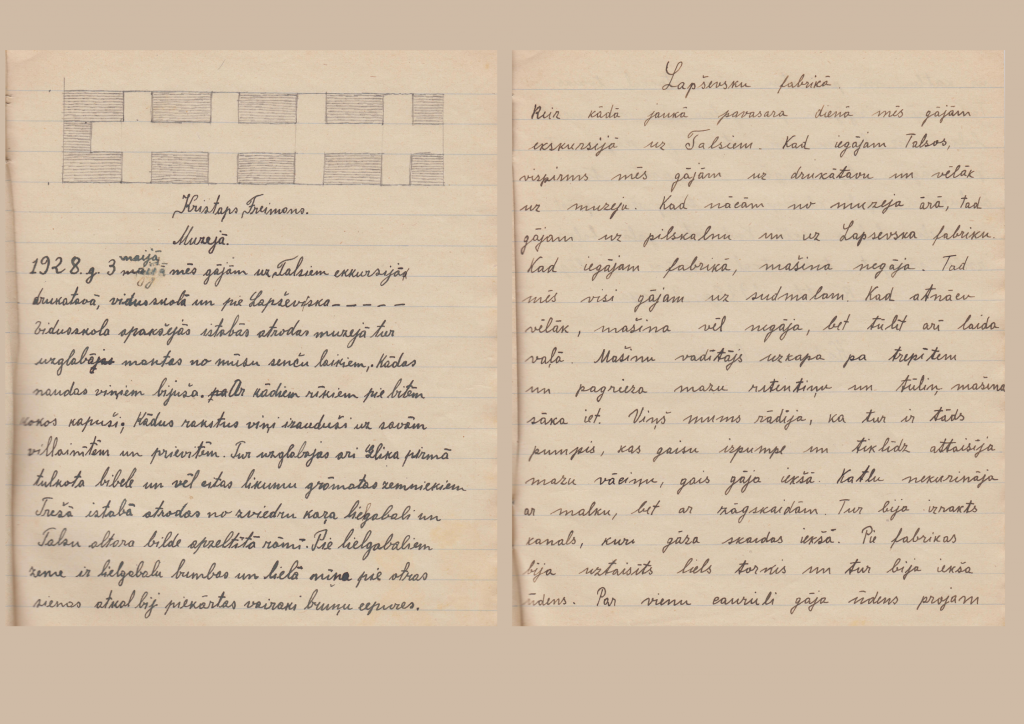 Kristaps Freimans.
Muzejā.
maijā
1928. g. 3 mēs gājām uz Talsiem ekkursijā,
drukatavā, vidusskolā un pie Lapševiska – – – – –
Vidusskola apakšējās istabās atrodas muzejā tur
uzglabājas mantas no mūsu senču laikiem, Kādas
naudas viņiem bijuša. par kādiem rīkiem pie bitēm
kokos kāpuši; Kādus rakstus viņi izauduši uz savām
villainītēm un prievitēm. Tur uzglabajas ari Glika pirmā
tulkota bibele un vēl citas likumu grāmatas zemniekiem
Trešā istabā atrodas no zviedru kaŗa lielgabali un
Talsu altara bilde apzeltītā rāmī. Pie lielgabaliem
zeme ir lielgabalu bumbas un lielā pie otras
sienas atkal bij piekārtas vairaki bruņu cepures.
Lapševsku fabrikā.
Reiz kādā jaukā pavasara dienā mēs gājām
ekskursijā uz Talsiem. Kad iegājam Talsos,
vispirms mēs gājām uz drukātavu un vēlāk
uz muzeju. Kad nācām no muzeja ārā, tad
gājam uz pilskalnu un uz Lapsevska fabriku.
Kad iegājam fabrikā, mašina negāja. Tad
mēs visi gājam uz sudmalam. Kad atnāca
vēlāk, mašina vēl negāja, bet tulit arī laida
vaļā. Mašinu vadītājs uzkapa pa trepitem
un pagrieza mazu ritentiņu un tūliņ mašina
sāka iet. Viņš mums rādīja, ka tur ir tāds
pumpis, kas gaisu izpumpe un tiklīdz attaisīja
mazu vāciņu, gais gāja iekšā. Katlu nekurināja
ar malku, bet ar zāgskaidām. Tur bija izrakts
kanals, kuri gāza skaidas iekšā. Pie fabrikas
bija uztaisīts liels tornis un tur bija iekša
ūdens. Par vienu cauruli gāja ūdens projam